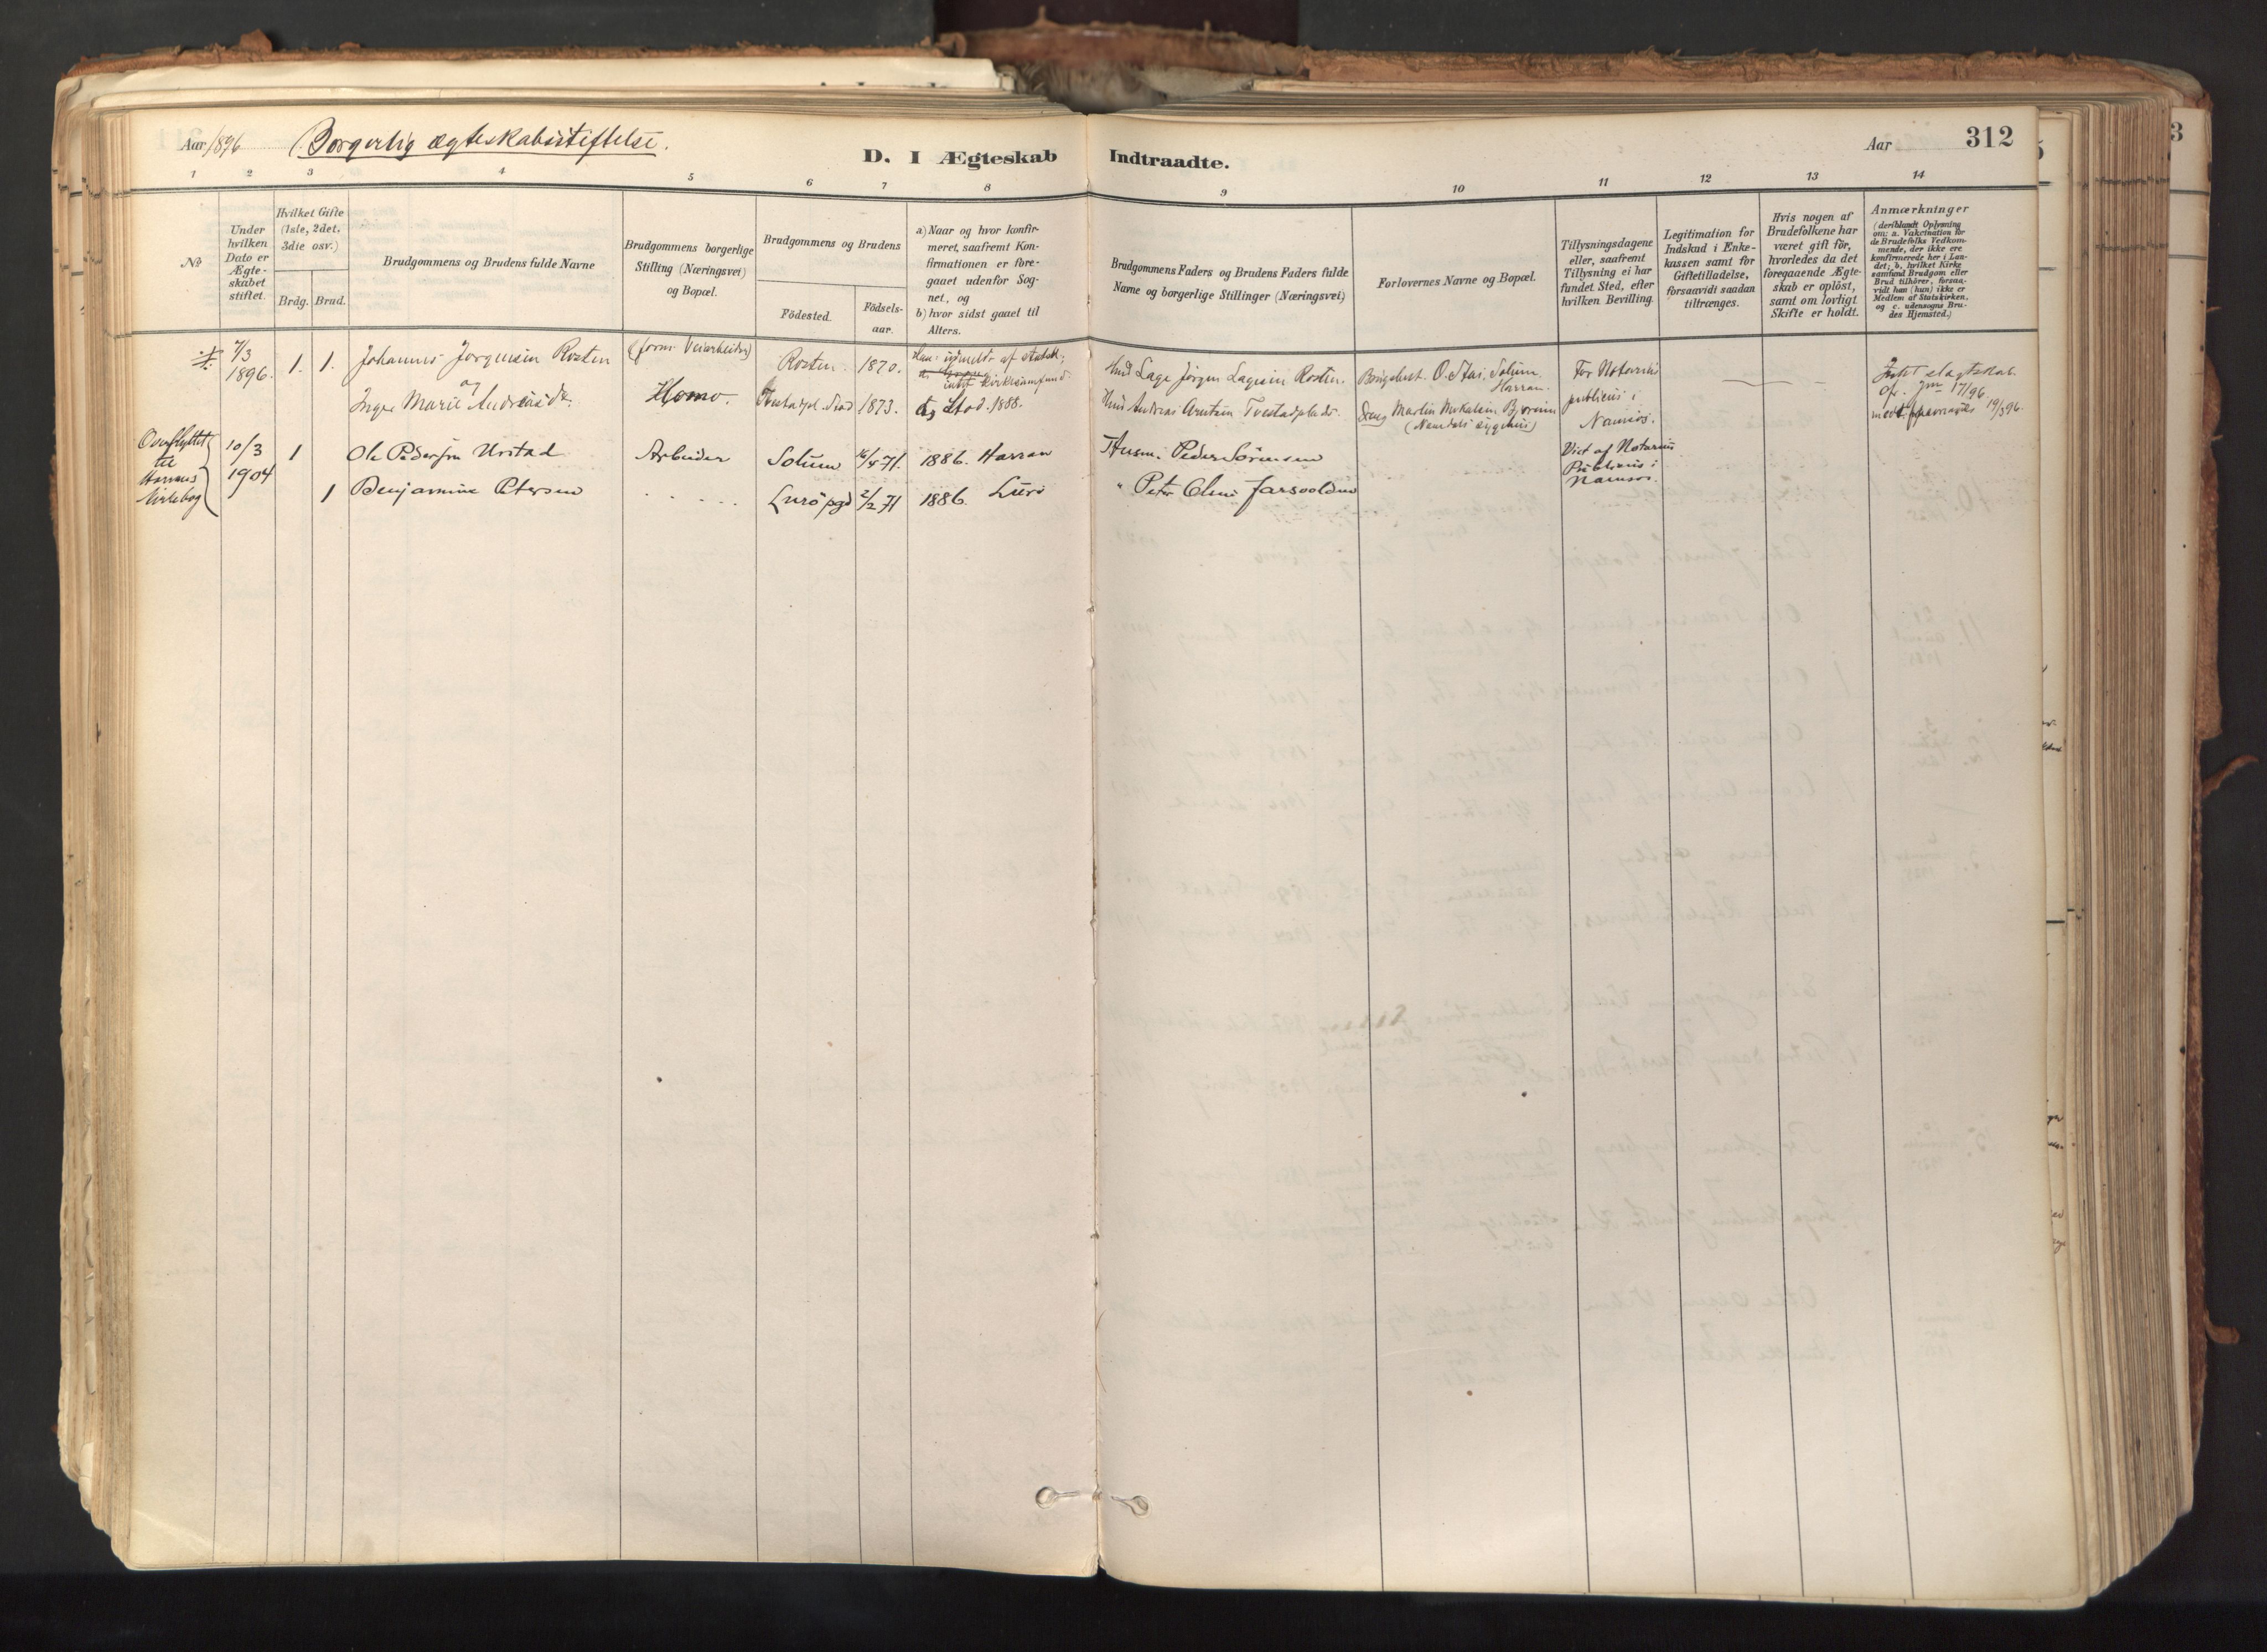 Aar 1896 Borgerlig ægteskabsstiftelse.
D. I Ægteskab Indtraadte.
Aar
312
1 2 3 4 5 6 7 8 9 10 11 12 13 14
No
Under
hvilken
Dato er
Ægte-
skabet
stiftet.
Hvilket Gifte
(1ste, 2det.
3die osv.)
Brdg. Brud.
Brudgommens og Brudens fulde Navne
Brudgommens borgerlige
Stilling (Næringsvei)
og Bopæl.
Brudgommens og Brudens
Födested.
Födsels-
aar.
a) Naar og hvor konfir-
meret, saafremt Kon-
firmationen er fore-
gaaet udenfor Sog-
net, og
b) hvor sidst gaaet til
Alters.
Brudgommens Faders og Brudens Faders fulde
Navne og borgerlige Stillinger (Næringsvei)
Forlovernes Navne og Bopæl.
Tillysningsdagene
eller, saafremt
Tillysning ei har
fundet Sted, efter
hvilken Bevilling.
Legitimation for
Indskud i Enke-
kassen samt for
Giftetilladelse,
forsaavidt saadan
tiltrænges.
Hvis nogen af
Brudefolkene har
været gift för,
hvorledes da det
foregaaende Ægte-
skab er oplöst,
samt om lovligt
Skifte er holdt.
Anmærkninger
(deriblandt Oplysning
om: a. Vakcination for
de Brudefolks Vedkom-
mende, der ikke ere
konfirmerede her i Lan-
det; b, hvilket Kirke
samfund Brudgom eller
Brud tilhörer, forsaa-
vidt han (hun) ikke er
Medlem af Statskirken,
og c. udensogns Bru-
des Hjemsted.)
7/3
1896.
1. 1.
Johannes Jørgensen Rosten
og
Inger Marie Andreasdr.
(forh. Veiarbeider)
Homo.
Rosten. 1870.
Tvestadpl. Stod 1873.
Han: udmeldt af statsk.;
intet kirkesamfund.
Stod. 1888.
Husd Lage Jørgen Lagesen Rosten.
Husd Andreas Arntsen Tvestadpladsen.
O. Has. Solum
Harran.
Martin Mikalsen Bjørnes
(Namdals sygehus)
For Notarius
publicus i
Namsos.
Intet slægtskab.
cfr. Jrn 17/96
19/3 96.
Overflyttet
til
Harrans
Kirkebog
10/3
1904
1
Ole Pedersen Urstad
Arbeider
Solum 16/4 71. 1886. Harran
Husm. Peder Sörensen
Viet af Notarius
Publicus i
Namsos.
1 Benjamine Petersen
Lurö pgd 2/2 71 1886. Lurö
" Peter Olsen